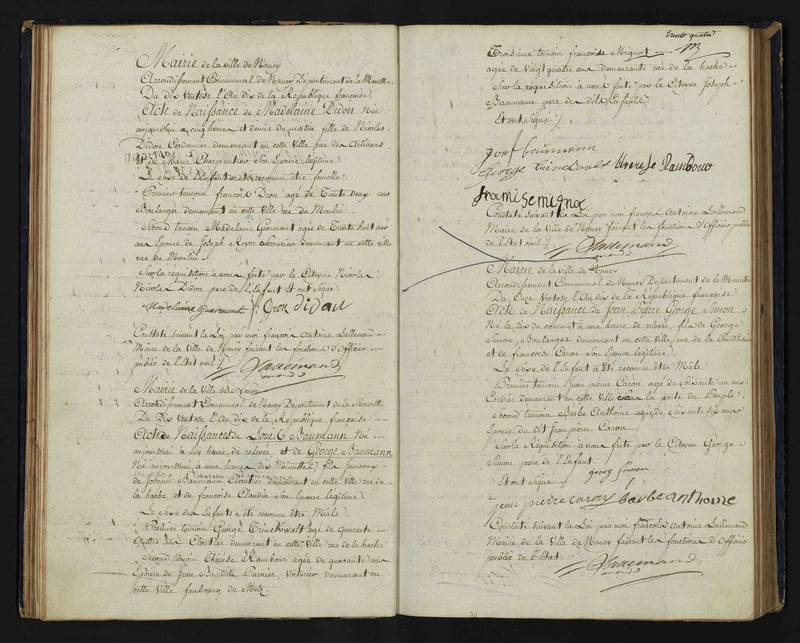 Mairie de la ville de Nancy
Arrondissement Communal de Nancy Département de la Meurthe
Du dix Ventose l'An dix de la République française
Acte de Naissance de Madelaine Didon Née
aujourdhuy a cinq heures et demie du matin fille de Nicolas
Didon Cordonnier demeurant en cette Ville
et de Marie Charpentier son Epouse légitime
Le sexe de l'Enfant a été reconnu être femelle
Premier temoin François Dron agé de Trente deux ans
Boulanger demeurant en cette Ville rue du Moulin
Second temoin Madelaine Guermont agée de Trente huit ans
Epouse de Joseph Royer Serrurier demeurant en cette ville
rue du Moulin
Sur la requisition à nous faite par le Citoyen Nicolas
Nicolas Didon pere de l'Enfant Et ont signé
Madelaine Guermont f. Dron didon
Constaté suivant la Loi par moi françois Antoine Lallemand
Maire de la Ville de Nancy faisant les fonctions d'Officier
public de l'Etat civil
Lallemand
Mairie de la Ville de Nancy
Arrondissement Communal de Nancy Département de la Meurthe
Du Dix Ventose l'An dix de la République française
Acte de Naissances de Louis Baumann Né
aujourdhuy à une heure de relevée et de George Baumann
Né aujourdhuy a une heure dix Minuttes, fils Jumeaux
de Joseph Baumann Cloutier demeurant en cette Ville rue de
la hache et de françoise Claudin son Epouse legitime
Le sexe des Enfants a été reconnu être Mâle
Premier temoin George agé de Quarante
quatre ans Cloutier demeurant en cette Ville rue de la hache
Second temoin Thérèse Rambour agée de quarante ans
Epouse de Jean Baptiste Garnier Voiturier demeurant en
cette Ville faubourg de Metz
Trente quatre
Troisieme temoin françoise Mignot
agée de Vingt quatre ans demeurante rue de la hache
Sur la requisition à nous faite par le Citoyen Joseph
Baumann pere des dits Enfants
Et ont signé
Josef baumann
George Therese Rambour
mignot
Constaté suivant la Loi par moi françois Antoine Lallemand
Maire de la Ville de Nancy faisant les fonctions d'Officier public
de l'Etat civil
Lallemand
Mairie de la ville de Nancy
Arrondissement Communal de Nancy Département de la Meurthe
Du Onze Ventose l'An dix de la République française
Acte de Naissance de Jean Pierre George Simon
Né le dix du courant à une heure de relevée, fils de George
Simon, Boulanger demeurant en cette Ville rue de la Constitution
et de francoise Caron son Epouse legitime
Le sexe de l'Enfant a été reconnu être Mâle
Premier temoin Jean pierre Caron agé de Soixante un ans
Cordier demeurant en cette Ville a la porte du Peuple
Second temoin Barbe Anthoine agée de Soixante six ans
Epouse du dit Jean pierre Caron
Sur la Réquisition à nous faite par le Citoyen George
Simon pere de l'Enfant
Et ont signé georg simon
jean pierre caron barbe anthoine
Constaté suivant la Loi par moi françois Antoine Lallemand
Maire de la Ville de Nancy faisant les fonctions d'Officier
public de l'Etat
Lallemand